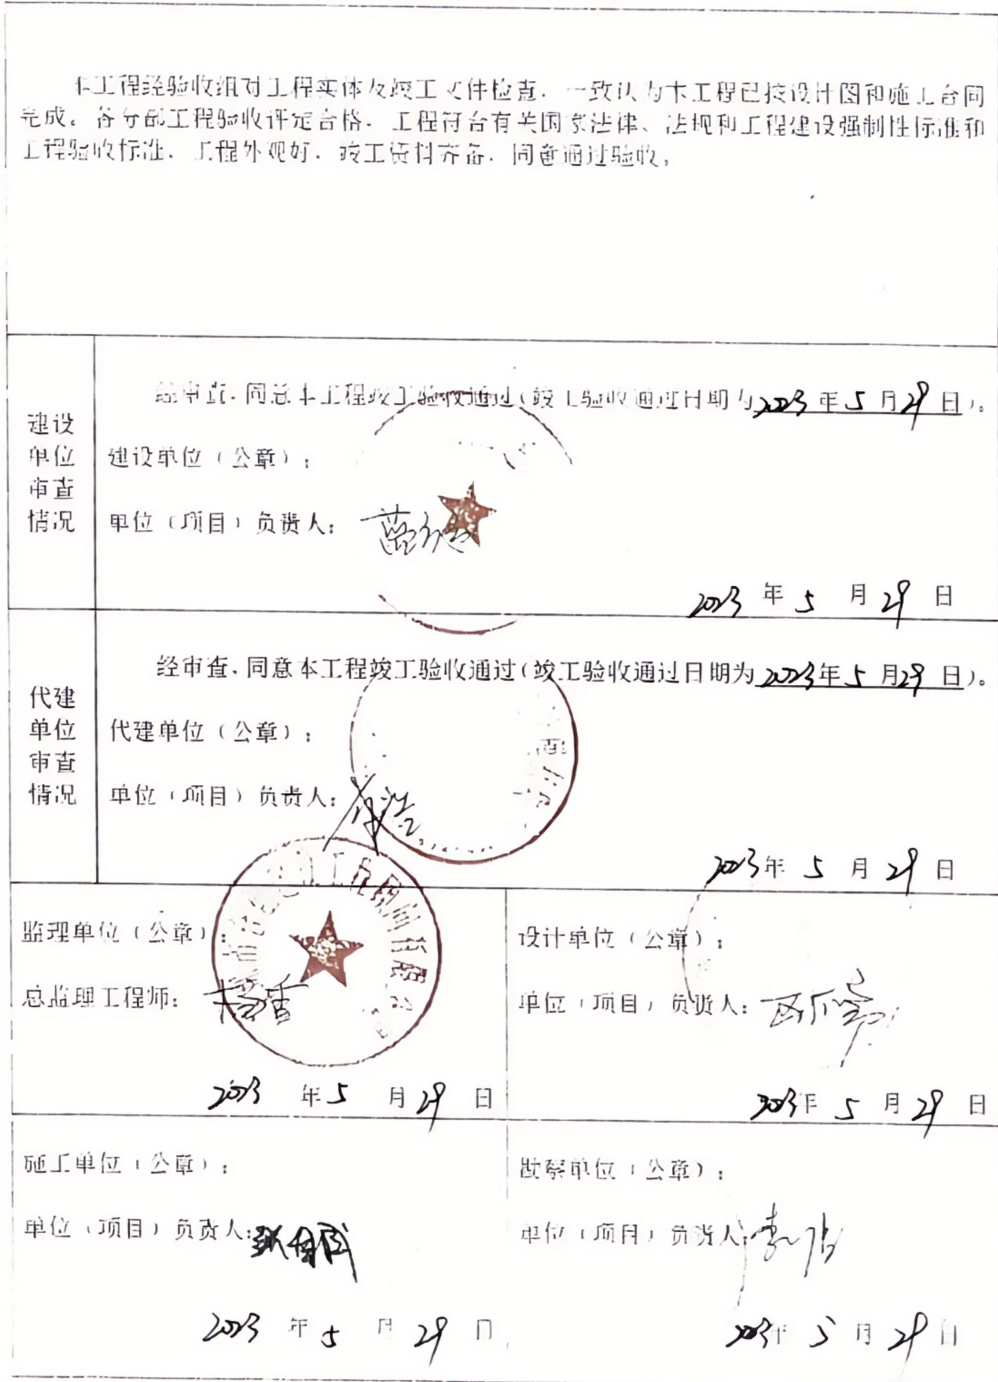 本工程经验收组对工程实体及竣工文件检查，一致认为本工程已按设计图和施工合同
完成。各分部工程验收评定合格，工程符合有关国家法律、法规和工程建设强制性标准和
工程验收标准，工程外观好，竣工资料齐备，同意通过验收。
建设
单位
审查
情况
经审查，同意本工程竣工验收通过（竣工验收通过日期为2023年5月29日）。
建设单位（公章）：
单位（项目）负责人：
2023年5月29日
代建
单位
审查
情况
经审查，同意本工程竣工验收通过（竣工验收通过日期为2023年5月29日）。
代建单位（公章）：
单位（项目）负责人：
2023年5月29日
监理单位（公章）：
总监理工程师：
2023年5月29日
设计单位（公章）：
单位（项目）负责人：
2023年5月29日
施工单位（公章）：
单位（项目）负责人：
2023年5月29日
勘察单位（公章）：
单位（项目）负责人：
2023年5月29日